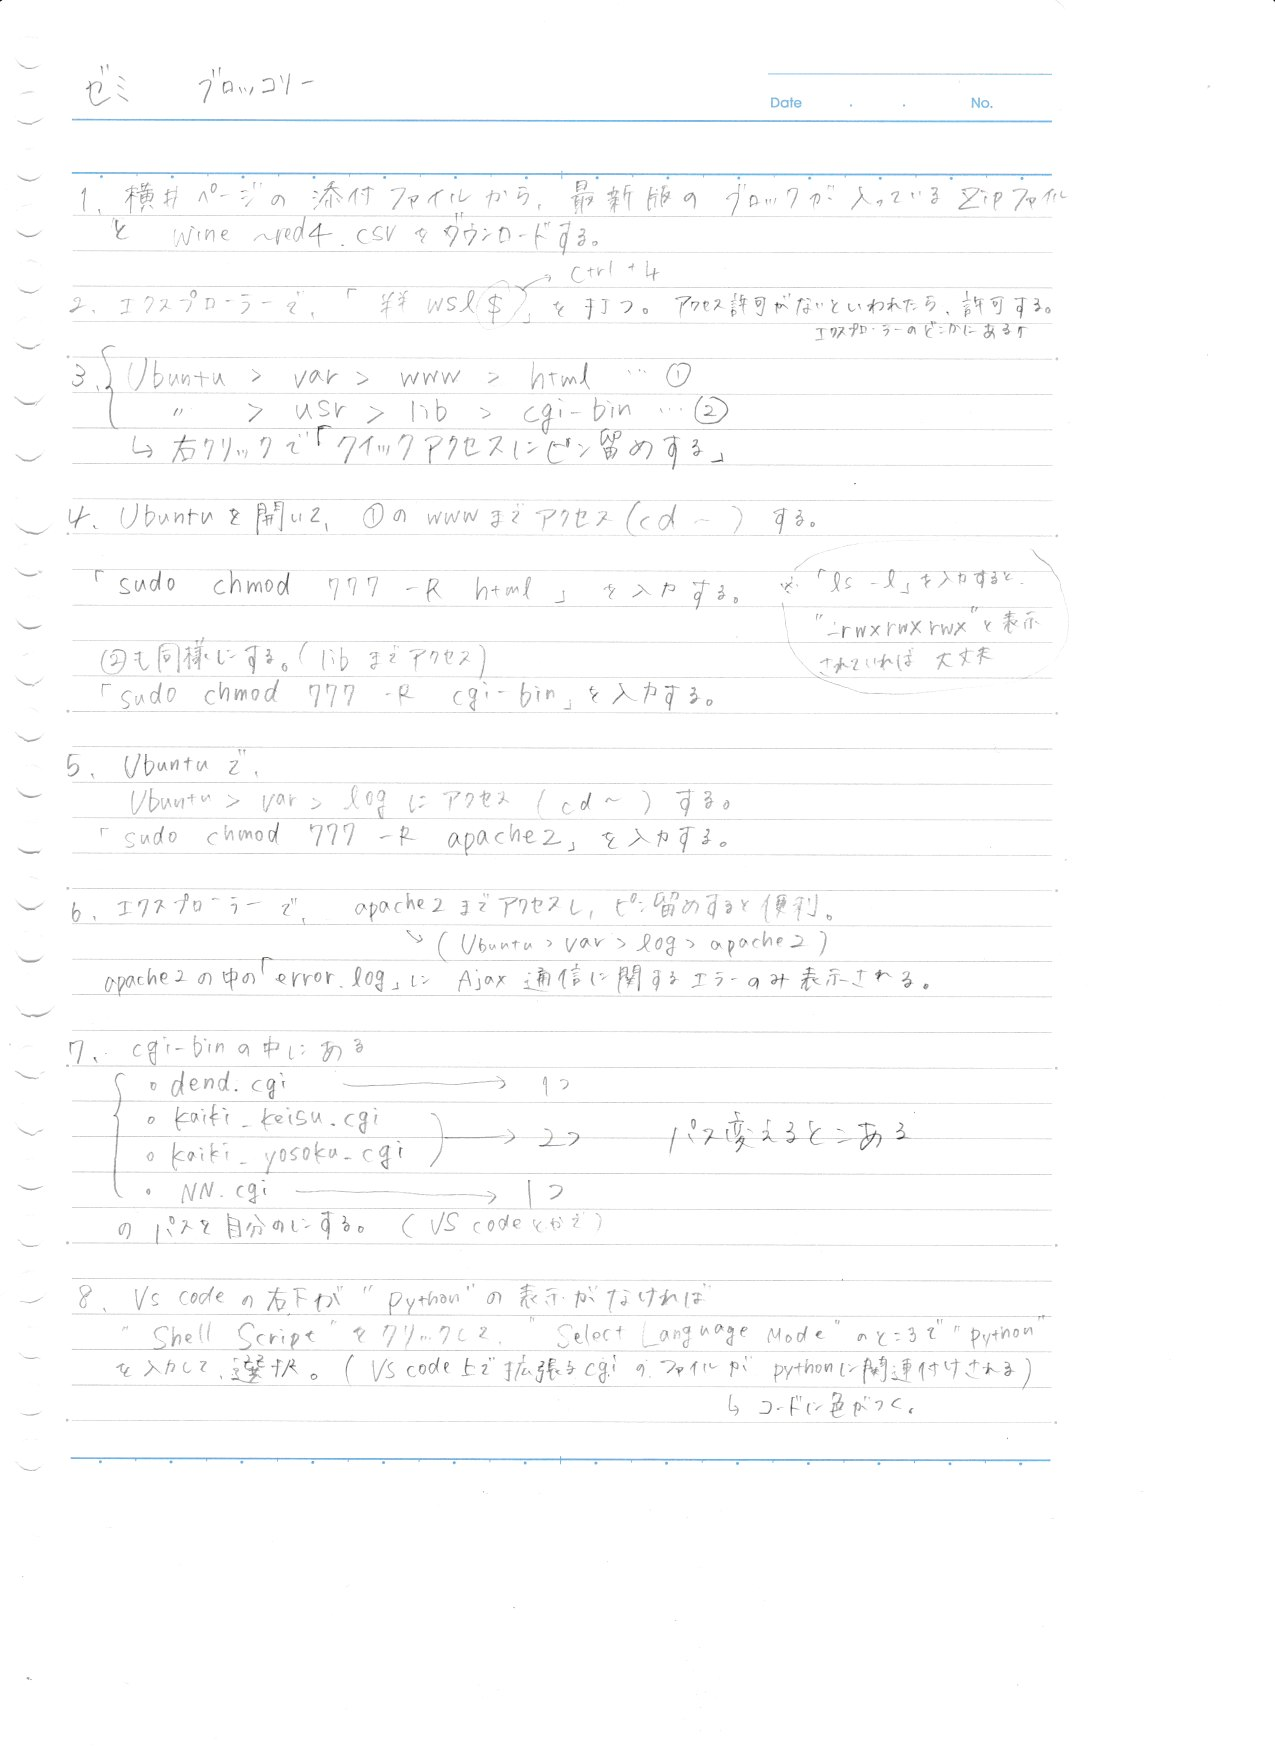 ゼミ ブロッコリー
Date . . No.
1. 横井ページの添付ファイルから、最新版のブロックが入っているZipファイル
と wine ~red4.csvをダウンロードする。
→ ctrl + 4
2. エクスプローラーで、「¥¥ wsl$」を打つ。アクセス許可がないといわれたら、許可する。
エクスプローラーのどこかにある↑
3. Ubuntu > var > www > html … ①
〃 > usr > lib > cgi-bin … ②
↳ 右クリックで「クイックアクセスにピン留めする」
4. Ubuntuを開いて、①のwwwまでアクセス(cd ~ )する。
「sudo chmod 777 -R html」を入力する。 ※「ls -l」を入力すると、
"-rwxrwxrwx"と表示
されていれば大丈夫
②も同様にする。(libまでアクセス)
「sudo chmod 777 -R cgi-bin」を入力する。
5. Ubuntuで、
Ubuntu > var > log にアクセス(cd ~ )する。
「sudo chmod 777 -R apache2」を入力する。
6. エクスプローラーで、apache2までアクセスし、ピン留めすると便利。
↘ (Ubuntu > var > log > apache2)
apache2の中の「error.log」に Ajax通信に関するエラーのみ表示される。
7. cgi-binの中にある
。dend.cgi → 1つ
。kaiki_keisu.cgi
→ 2つ パス変えるとこある
。kaiki_yosoku_cgi
。NN.cgi → 1つ
のパスを自分のにする。(VS codeとかで)
8. Vs codeの右下が"python"の表示がなければ
"Shell Script"をクリックして、"Select Language Mode"のところで"python"
を入力して、選択。(VS code上で拡張子cgiのファイルがpythonに関連付けされる)
↳ コードに色がつく。